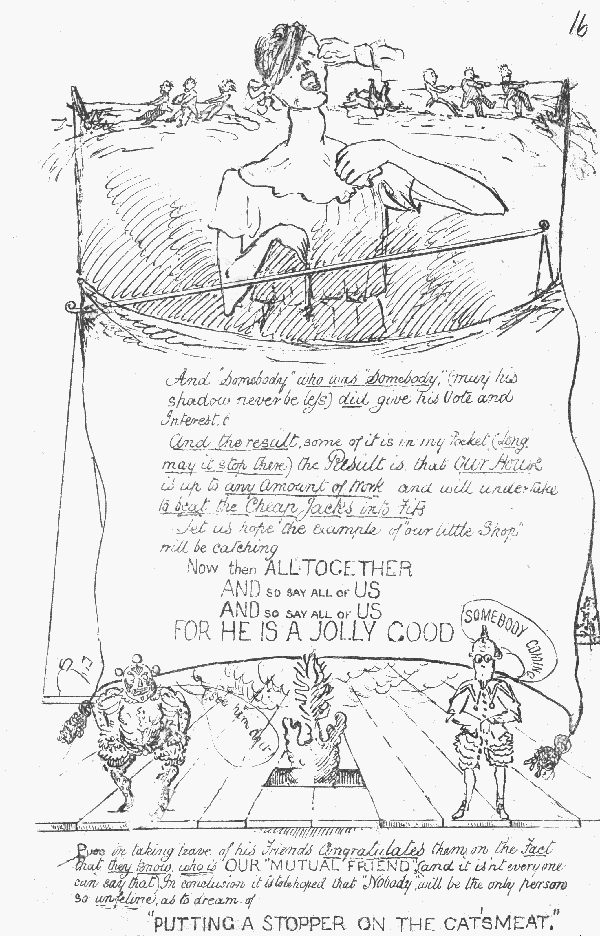 16
And "Somebody" who was "Somebody," (may his
shadow never be less) did give his Vote and
Interest, &
And the result, some of it is in my Pocket (Long
may it stop there) the Result is, that Our House
is up to any Amount of Work and will undertake
to beat the "Cheap Jacks into Fits
Let us hope the example of "our little Shop"
will be catching
Now then ALL TOGETHER
AND SO SAY ALL OF US
AND SO SAY ALL OF US
FOR HE IS A JOLLY GOOD
SOMEBODY COMING
Puss in taking leave of his Friends Congratulates them on the Fact
that they know, who is "OUR "MUTUAL FRIEND" (and it isn't everyone
can say that) In conclusion it is to be hoped that "Nobody" will be the only person
so unfeline, as to dream of
"PUTTING A STOPPER ON THE CAT'SMEAT."